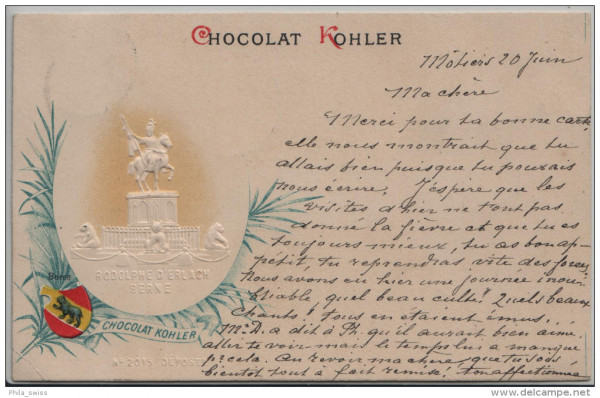 CHOCOLAT KOHLER
Môtiers 20 Juin
Ma chère
Merci pour ta bonne carte
elle nous montrait que tu
allais bien puisque tu pouvais
nous écrire. J'espère que les
visites d'hier ne t'ont pas
donné la fièvre et que tu es
toujours mieux, tu as bon ap-
pétit, tu reprendras vite des forces
Nous avons eu hier une journée inou-
bliable, quel beau culte! Quels beaux
chants! tous en étaient émus...
a dit à Ph. qu'il aurait bien aimé
aller te voir mais le temps lui a manqué
pr. cela. Au revoir ma chère que tu sois
bientôt tout à fait remise! Ton affectionnée
RODOLPHE D'ERLACH
BERNE
Berne
CHOCOLAT KOHLER
No 2015 DÉPOSÉ
Phila_swiss
delcampe.net